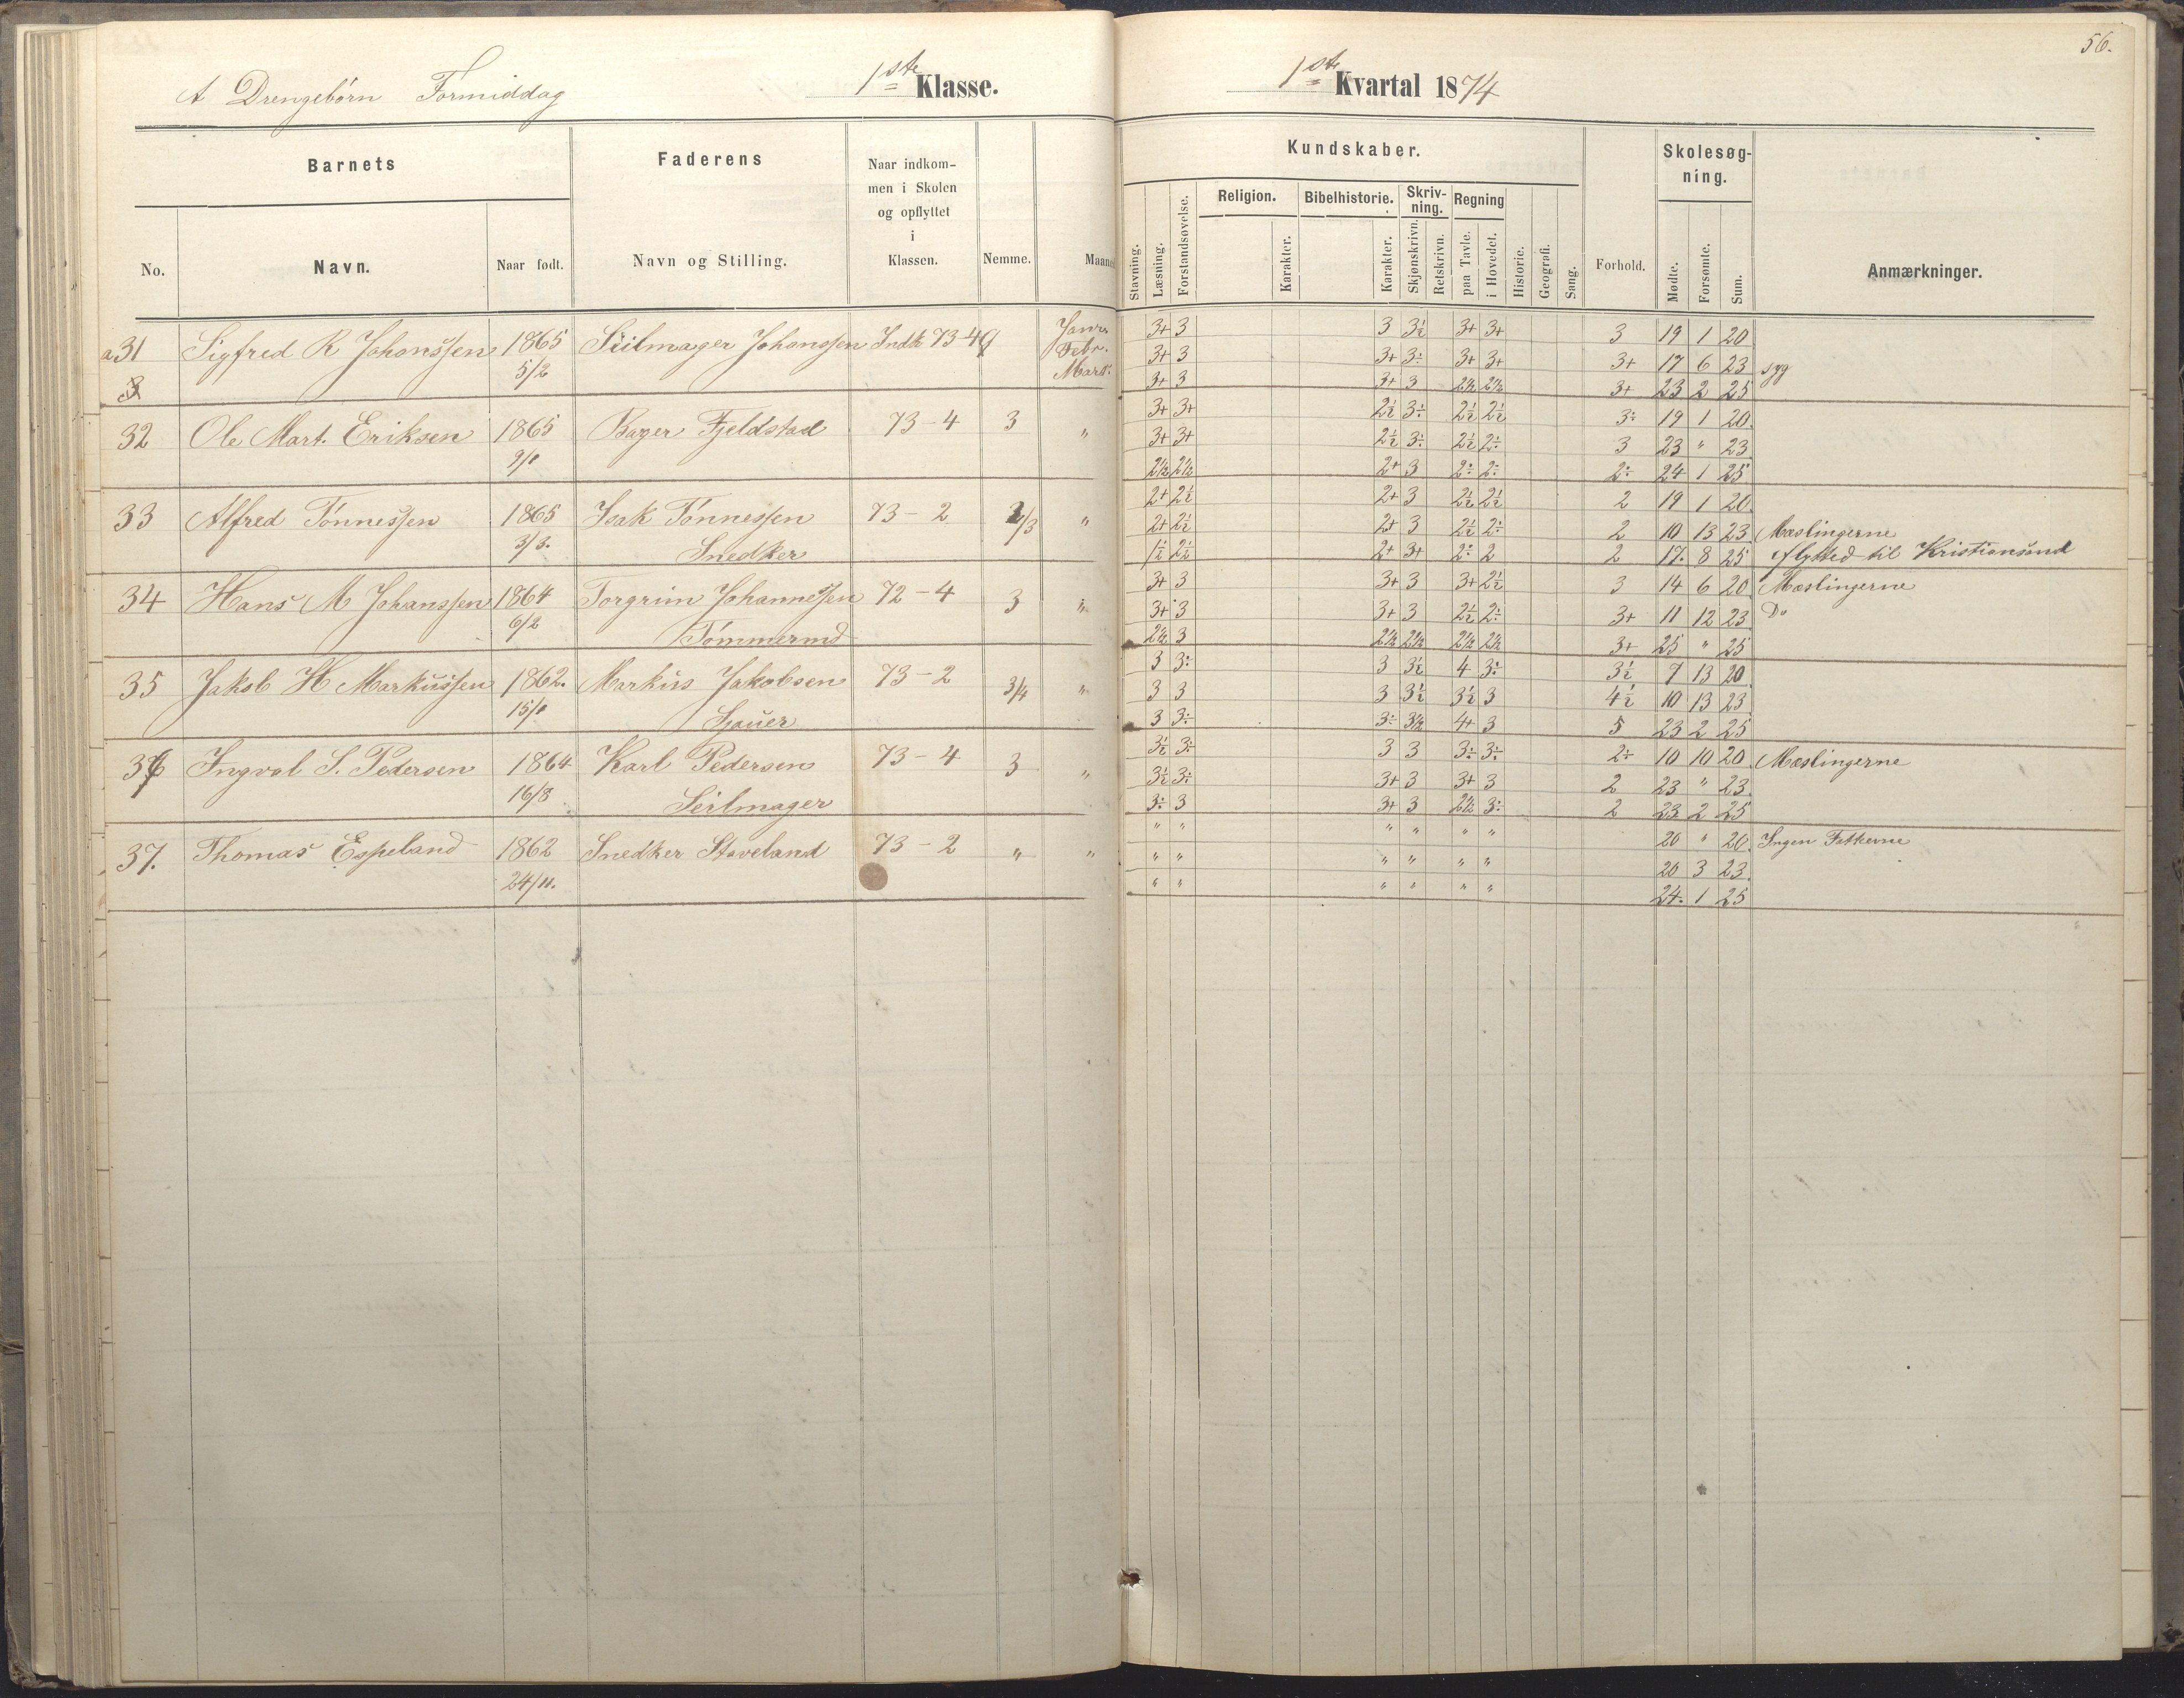 56.
A Drengebørn Formiddag 1ste Klasse.
1ste Kvartal 1874
Barnets Faderens Naar indkom-
men i Skolen
og opflyttet
i
Klassen.
No. Navn. Naar født. Navn og Stilling. Nemme. Maaned
Kundskaber. Skolesøg-
ning.
Stavning. Læsning. Forstandsøvelse. Religion. Karakter. Bibelhistorie. Karakter. Skriv-
ning. Skjønskrivn. Retskrivn. Regning paa Tavle. i Hovedet. Historie. Geografi. Sang. Forhold. Mødte. Forsømte. Sum. Anmærkninger.
31 Sigfred R Johanssen 1865 Seilmager Johanssen Indk 73-4 Janr 3+ 3 3 3½ 3+ 3+ 3 19 1 20
5/2 Febr. 3+ 3 3+ 3÷ 3+ 3+ 3+ 17 6 23 syg
Marts 3+ 3 3+ 3 2½ 2½ 3+ 23 2 25
32 Ole Mart. Eriksen 1865 Bager Fjeldstad 73-4 3 " 3+ 3+ 2½ 3÷ 2½ 2½ 3÷ 19 1 20.
9/1 3+ 3+ 2½ 3÷ 2½ 2÷ 3 23 " 23
2½ 2½ 2+ 3 2÷ 2÷ 2÷ 24 1 25
33 Alfred Tönnessen 1865 Isak Tönnessen 73-2 2/3 " 2+ 2½ 2+ 3 2½ 2½ 2 19 1 20.
3/3. Snedker 2+ 2½ 2+ 3 2½ 2÷ 2 10 13 23 Mæslingerne
1½ 2½ 2+ 3+ 2÷ 2 2 17. 8 25 flytted til Kristiansund
34 Hans M Johanssen 1864 Torgrim Johannessen 72-4 3 " 3+ 3 3+ 3 3+ 2½ 3 14 6 20 Mæslingerne
6/2 Tömmermd 3+ 3 3+ 3 2½ 2÷ 3+ 11 12 23 Do
2½ 3 2½ 2½ 2½ 2½ 3+ 25 " 25
35 Jakob H Markussen 1862. Markus Jakobsen 73-2 3/4 " 3 3÷ 3 3½ 4 3÷ 3½ 7 13 20
15/1 Sjauer 3 3 3 3½ 3½ 3 4½ 10 13 23
3 3÷ 3÷ 3½ 4+ 3 5 23 2 25
36 Ingval S. Pedersen 1864 Karl Pedersen 73-4 3 " 3½ 3÷ 3 3 3÷ 3÷ 2÷ 10 10 20 Mæslingerne
16/8 Seilmager 3½ 3÷ 3+ 3 3+ 3 2 23 " 23.
3÷ 3 3+ 3 2½ 3÷ 2 23 2 25
37. Thomas Espeland 1862 Snedker Staveland 73-2 " " " " " " " " 20 " 20.
24/11. " " " " " " 20 3 23.
" " " " " " 24. 1 25